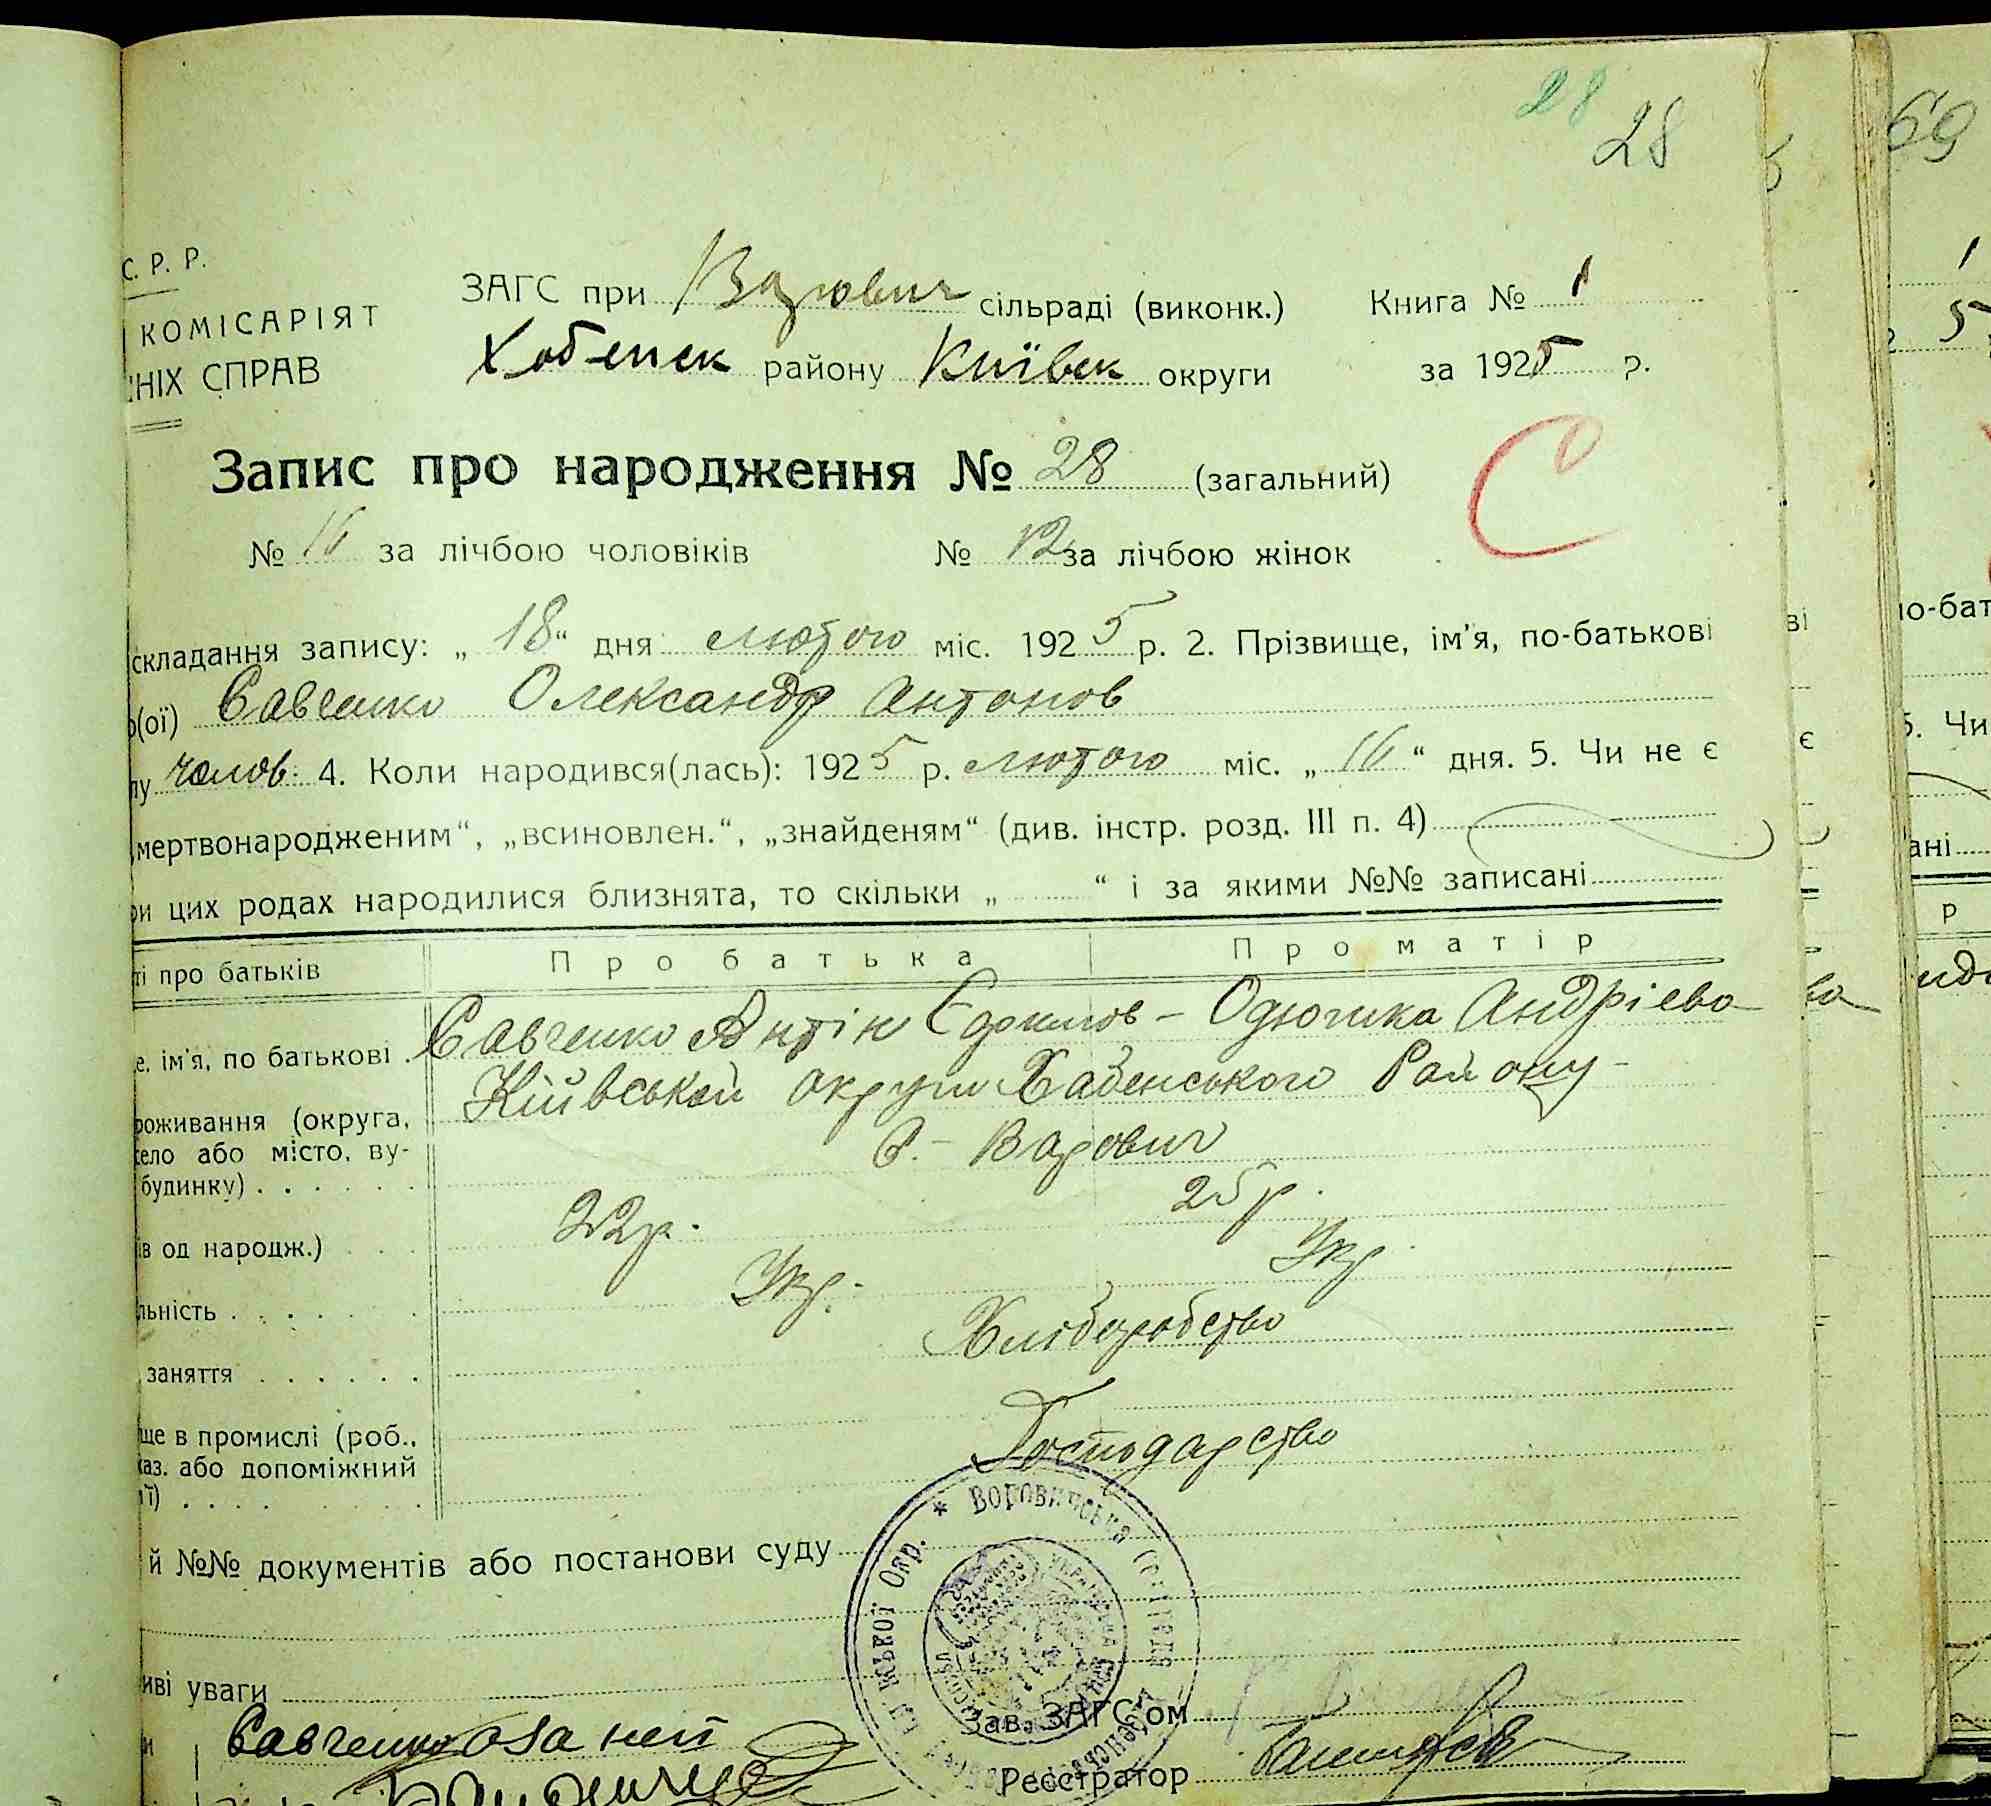 28
28
69
С. Р. Р.
КОМІСАРІЯТ
НІХ СПРАВ
ЗАГС при Варович сільраді (виконк.) Книга № 1
Хабенск району Київск округи за 1925 р.
Запис про народження № 28 (загальний)
№ 16 за лічбою чоловіків № 12 за лічбою жінок
С
складання запису: „18“ дня лютого міс. 1925 р. 2. Прізвище, ім'я, по-батькові
(ої) Савченко Олександр Антонов
чолов. 4. Коли народився(лась): 1925 р. лютого міс. „16“ дня. 5. Чи не є
мертвонародженим“, „всиновлен.“, „знайденям“ (див. інстр. розд. III п. 4)
ри цих родах народилися близнята, то скільки „ “ і за якими №№ записані
ті про батьків Про батька Про матір
е, ім'я, по батькові Савченко Антін Єфимов – Одюгика Андрієва
Київської округи Хабенського Району –
роживання (округа,
село або місто, ву-
будинку)
С. – Варович
ів од народж.) 22 р. 25 р.
льність Укр. Укр.
заняття Хліборобство
ще в промислі (роб.,
каз. або допоміжний
ії)
Господарство
й №№ документів або постанови суду
иві уваги
Савченко за неп
Зав. ЗАГС'ом
Реєстратор
Воровичська
ської Окр.